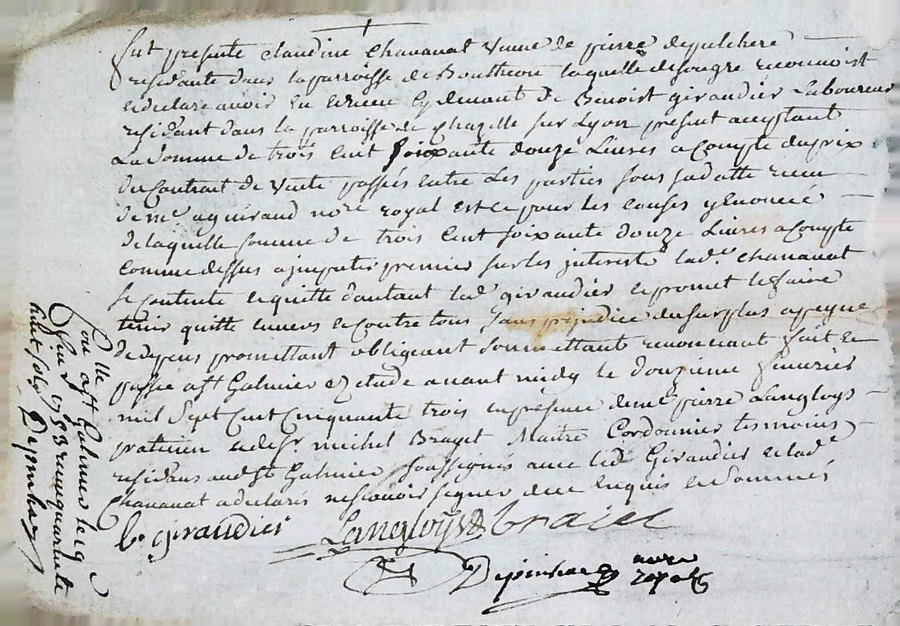 fut presente claudine chavanat veuve de pierre depulchere
residante dans la parroisse de Boutheon laquelle de son gre reconnoist
et declare avoir eu et receu cy devant de Benoist girandier Laboureur
residant dans la parroisse de chazelle sur Lyon present acceptant
La somme de trois cent soixante douze Livres a Compte du prix
du Contrat de vente passés entre Les parties sous sa datte receu
de me aguiraud nore royal et ce pour les causes y enoncé
de laquelle somme de trois cent soixante douze Livres a Compte
comme dessus a imputer premier sur les interests lade chavanat
se contente et quitte d'autant led girandier et promet le faire
tenir quitte envers et contre tous sans prejudice du surplus a peyne
de depens promettant obligeant soumettant renoncant fait et
passé a st Galmier etude avant midy le douzieme fevrier
mil sept cent cinquante trois en presence de me pierre Langloys
praticien et de sr michel Brayet Maitre Cordonnier tesmoins
residans aud st Galmier soussignés avec led Girandier et lade
Chavanat a declarés ne scavoir signer de ce enquis et sommés
be girandier Langloys braiet
Depinhac nore royal
Clle
a st Galmier le 13
1753 receu quarante
huit sols Depinhac